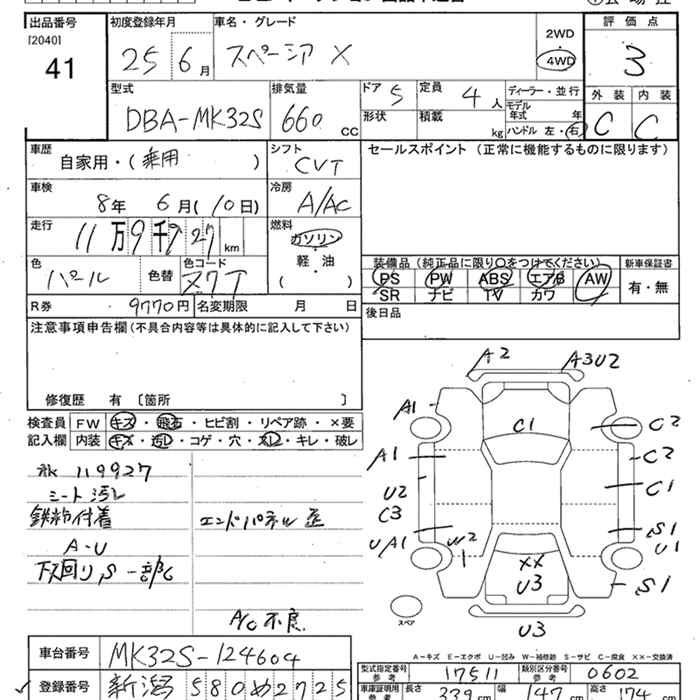 出品番号 初度登録年月 車名・グレード 評価点
[2040]
41 25 6月 スペーシア X 2WD 4WD 3
型式 排気量 ドア 5 定員 4人 ディーラー・並行 外装 内装
DBA-MK32S 660 CC 形状 積載 kg モデル年式 年 ハンドル 左・右 C C
車歴 自家用・(乗用) シフト CVT セールスポイント (正常に機能するものに限ります)
車検 8年 6月(10日) 冷房 A/AC
走行 11万9千927km 燃料 ガソリン・軽・油 ( )
色 パール 色替 色コード ZVT 装備品(純正品に限り○をつけてください) 新車保証書
PS PW ABS エアB AW 有・無
SR ナビ TV カワ
R券 9770円 名変期限 月 日 後日品
注意事項申告欄(不具合内容等は具体的に記入して下さい)
修復歴 有 〔箇所 〕
検査員 FW キズ・飛石・ヒビ割・リペア跡・×要
記入欄 内装 キズ・汚レ・コゲ・穴・スレ・キレ・破レ
A2 A3U2
A1 C1 C2
A1 C2
U2 C1
C3 S1
UA1 W2 U1
1 XX S1
U3
スペア U3
119927
シート汚レ
鉄粉付着 エンドパネル歪
A・U
下回り,S一部C
A/C不良
A-キズ E-エクボ U-凹み W-補修跡 S-サビ C-腐食 XX-交換済
車台番号 MK32S-124604 型式指定番号 参考 17511 類別区分番号 参考 0602
登録番号 新潟 580 め 2725 車庫証明用 参考 長さ 339cm 幅 147cm 高さ 174cm